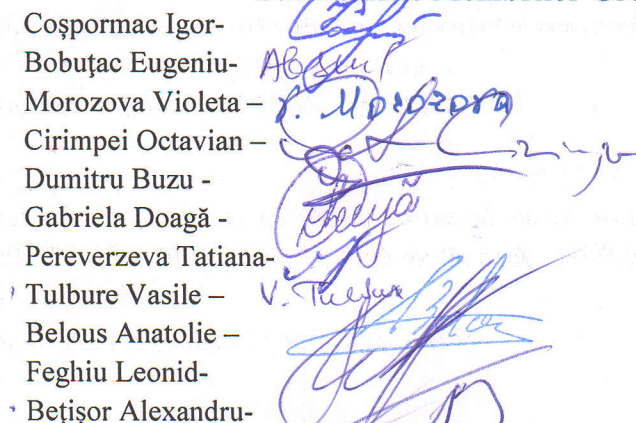 Coșpormac Igor-
Bobuţac Eugeniu- Absent
Morozova Violeta – V. Morozova
Cirimpei Octavian –
Dumitru Buzu -
Gabriela Doagă -
Pereverzeva Tatiana-
Tulbure Vasile – V. Tulbure
Belous Anatolie –
Feghiu Leonid-
Beţișor Alexandru-